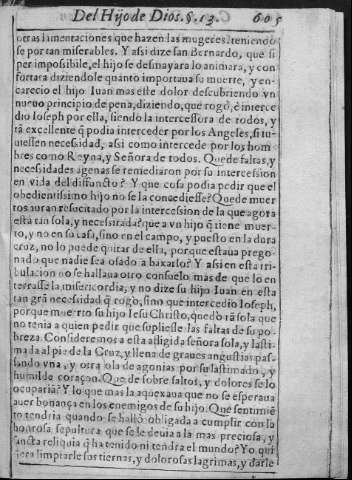 Del Hijo de Dios. §. 13. 605
otras lamentaciones que hazen las mugeres teniendo
se por tan miserables. Y assi dize san Bernardo, que si
per impossibile, el hijo se desmayara lo animara, y con
fortara diziendole quãto importaua su muerte, y en-
carecio el hijo Iuan mas este dolor descubriendo vn
nueuo principio de pena, diziendo, que rogò, è interce
dio Ioseph por ella, siendo la intercessora de todos, y
tã excellente q̃ podia interceder por los Angeles, si tu-
uiessen necessidad, assi como intercede por los hom
bres como Reyna, y Señora de todos. Que de faltas, y
necessidades agenas se remediaron por su intercession
en vida del diffuncto? Y que cosa podia pedir que el
obedientissimo hijo no se la concediesse? Que de muer
tos auran resucitado por la intercession de la que agora
està tan sola, y necessitada? que a vn hijo q̃ tiene muer
to, y no en su casa, sino en el campo, y puesto en la dura
cruz, no lo puede quitar de ella, porque estaua prego-
nado que nadie sea osado a baxarlo? Y assi en esta tri
bulacion no se hallaua otro consuelo mas de que lo en
terrasse la misericordia, y no dize su hijo Iuan en esta
tan grã necessidad q̃ rogo, sino que intercedio Ioseph,
porque muerto su hijo Iesu Christo, quedò tã sola que
no tenia a quien pedir que supliesse las faltas de su po-
breza. Consideremos a esta afligida señora sola, y lasti-
mada al pie de la Cruz, y llena de graues angustias pas-
sando vna, y otra ola de agonias por su lastimado, y
humilde coraçon. Que de sobre saltos, y dolores se lo
ocuparia? Y lo que mas la aquexaua que no se esperaua
auer bonança en los enemigos de su hijo. Que sentimiẽ
to tendria quando se hallò obligada a cumplir con la
honrosa sepultura que se le deuia a la mas preciosa, y
sancta reliquia q̃ ha tenido ni tendra el mundo? Yo qui
siera limpiarle sus tiernas, y dolorosas lagrimas, y darle